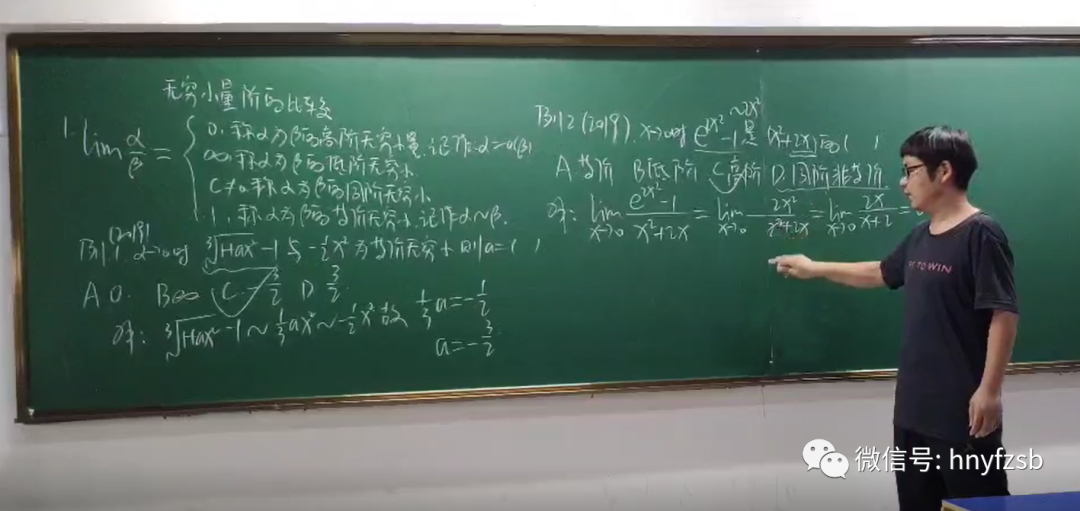 无穷小量阶的比较
1. lim α/β = { 0, 称α为β的高阶无穷小量, 记作α=o(β)
∞, 称α为β的低阶无穷小
C≠0, 称α为β的同阶无穷小
1, 称α为β的等阶无穷小, 记作α~β.
例1 (2018) x→0时 ∛(1+ax²) -1 与 -½x² 为等阶无穷小 则a=( )
A 0. B ∞ C -3/2 D 3/2
解: ∛(1+ax²) -1 ~ ⅓ax² ~ -½x² 故 ⅓a = -½
a = -3/2
例2 (2019). x→0时 e^(2x²) -1 ~2x² 是 (x²+2x) 的( )
A 等阶 B 低阶 C 高阶 D 同阶非等阶
解: lim x→0 (e^(2x²)-1)/(x²+2x) = lim x→0 2x²/(x²+2x) = lim x→0 2x/(x+2) =
TO WIN
微信号: hnyfzsb